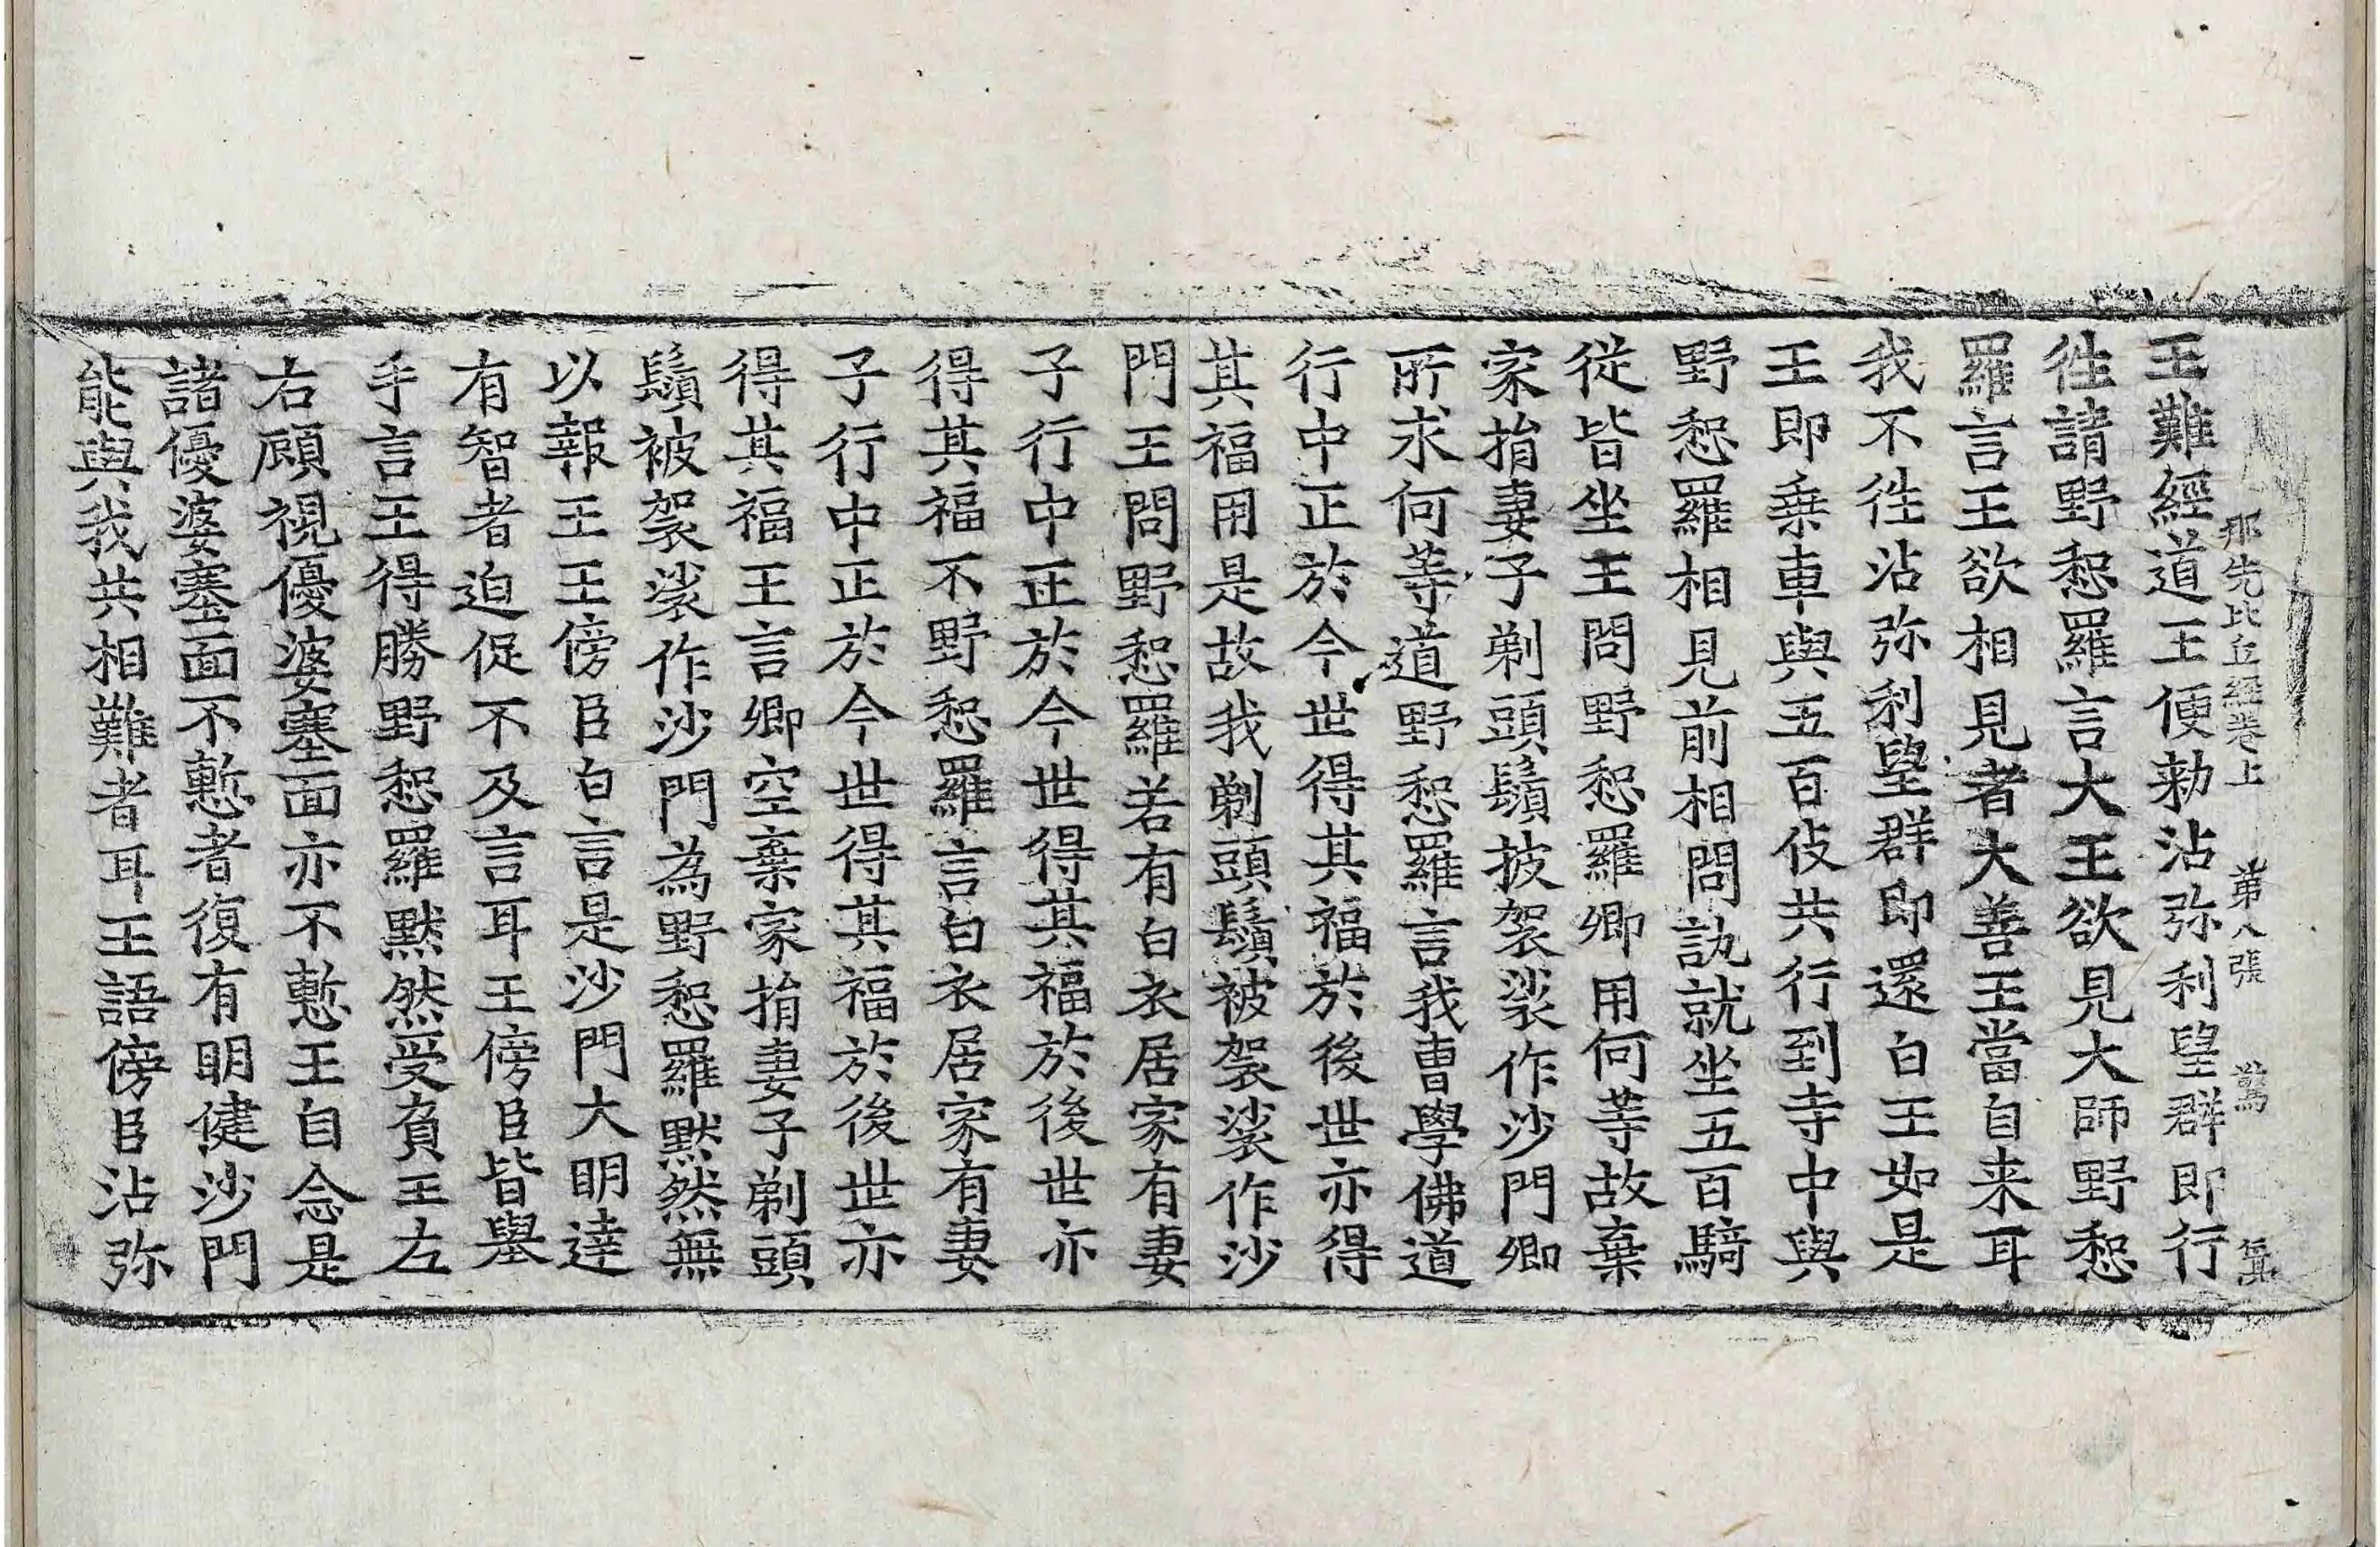 那先比丘經卷上 第八張 驚
王難經道王便勑沾弥利望群即行
徃請野惒羅言大王欲見大師野惒
羅言王欲相見者大善王當自来耳
我不徃沾弥利望群即還白王如是
王即乗車與五百伎共行到寺中與
野惒羅相見前相問訊就坐五百騎
從皆坐王問野惒羅卿用何等故棄
家捐妻子剃頭鬚披袈裟作沙門卿
所求何等道野惒羅言我曹學佛道
行中正於今世得其福於後世亦得
其福用是故我剃頭鬚被袈裟作沙
門王問野惒羅若有白衣居家有妻
子行中正於今世得其福於後世亦
得其福不野惒羅言白衣居家有妻
子行中正於今世得其福於後世亦
得其福王言卿空棄家捐妻子剃頭
鬚被袈裟作沙門為野惒羅默然無
以報王王傍臣白言是沙門大明達
有智者迫促不及言耳王傍臣皆舉
手言王得勝野惒羅默然受負王左
右顧視優婆塞面亦不慙王自念是
諸優婆塞面不慙者復有明健沙門
能與我共相難者耳王語傍臣沾弥